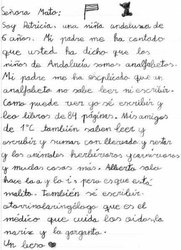 Señora Mato:
Soy Patricia, una niña andaluza de
6 años. Mi padre me ha contado
que usted ha dicho que los
niños de Andalucía somos analfabetos.
Mi padre me ha explicado que un
analfabeto no sabe leer ni escribir.
Como puede ver yo sé escribir y
leo libros de 84 páginas. Mis amigos
de 1ºC también saben leer y
escribir y sumar con llevada y restar
y los animales herbívoros y carnívoros
y muchas cosas más. Alberto solo
hace la a y la i pero es que está
malito. También sé escribir
otorrinolaringólogo que es el
médico que cuida los oídos, la
nariz y la garganta.
Un beso